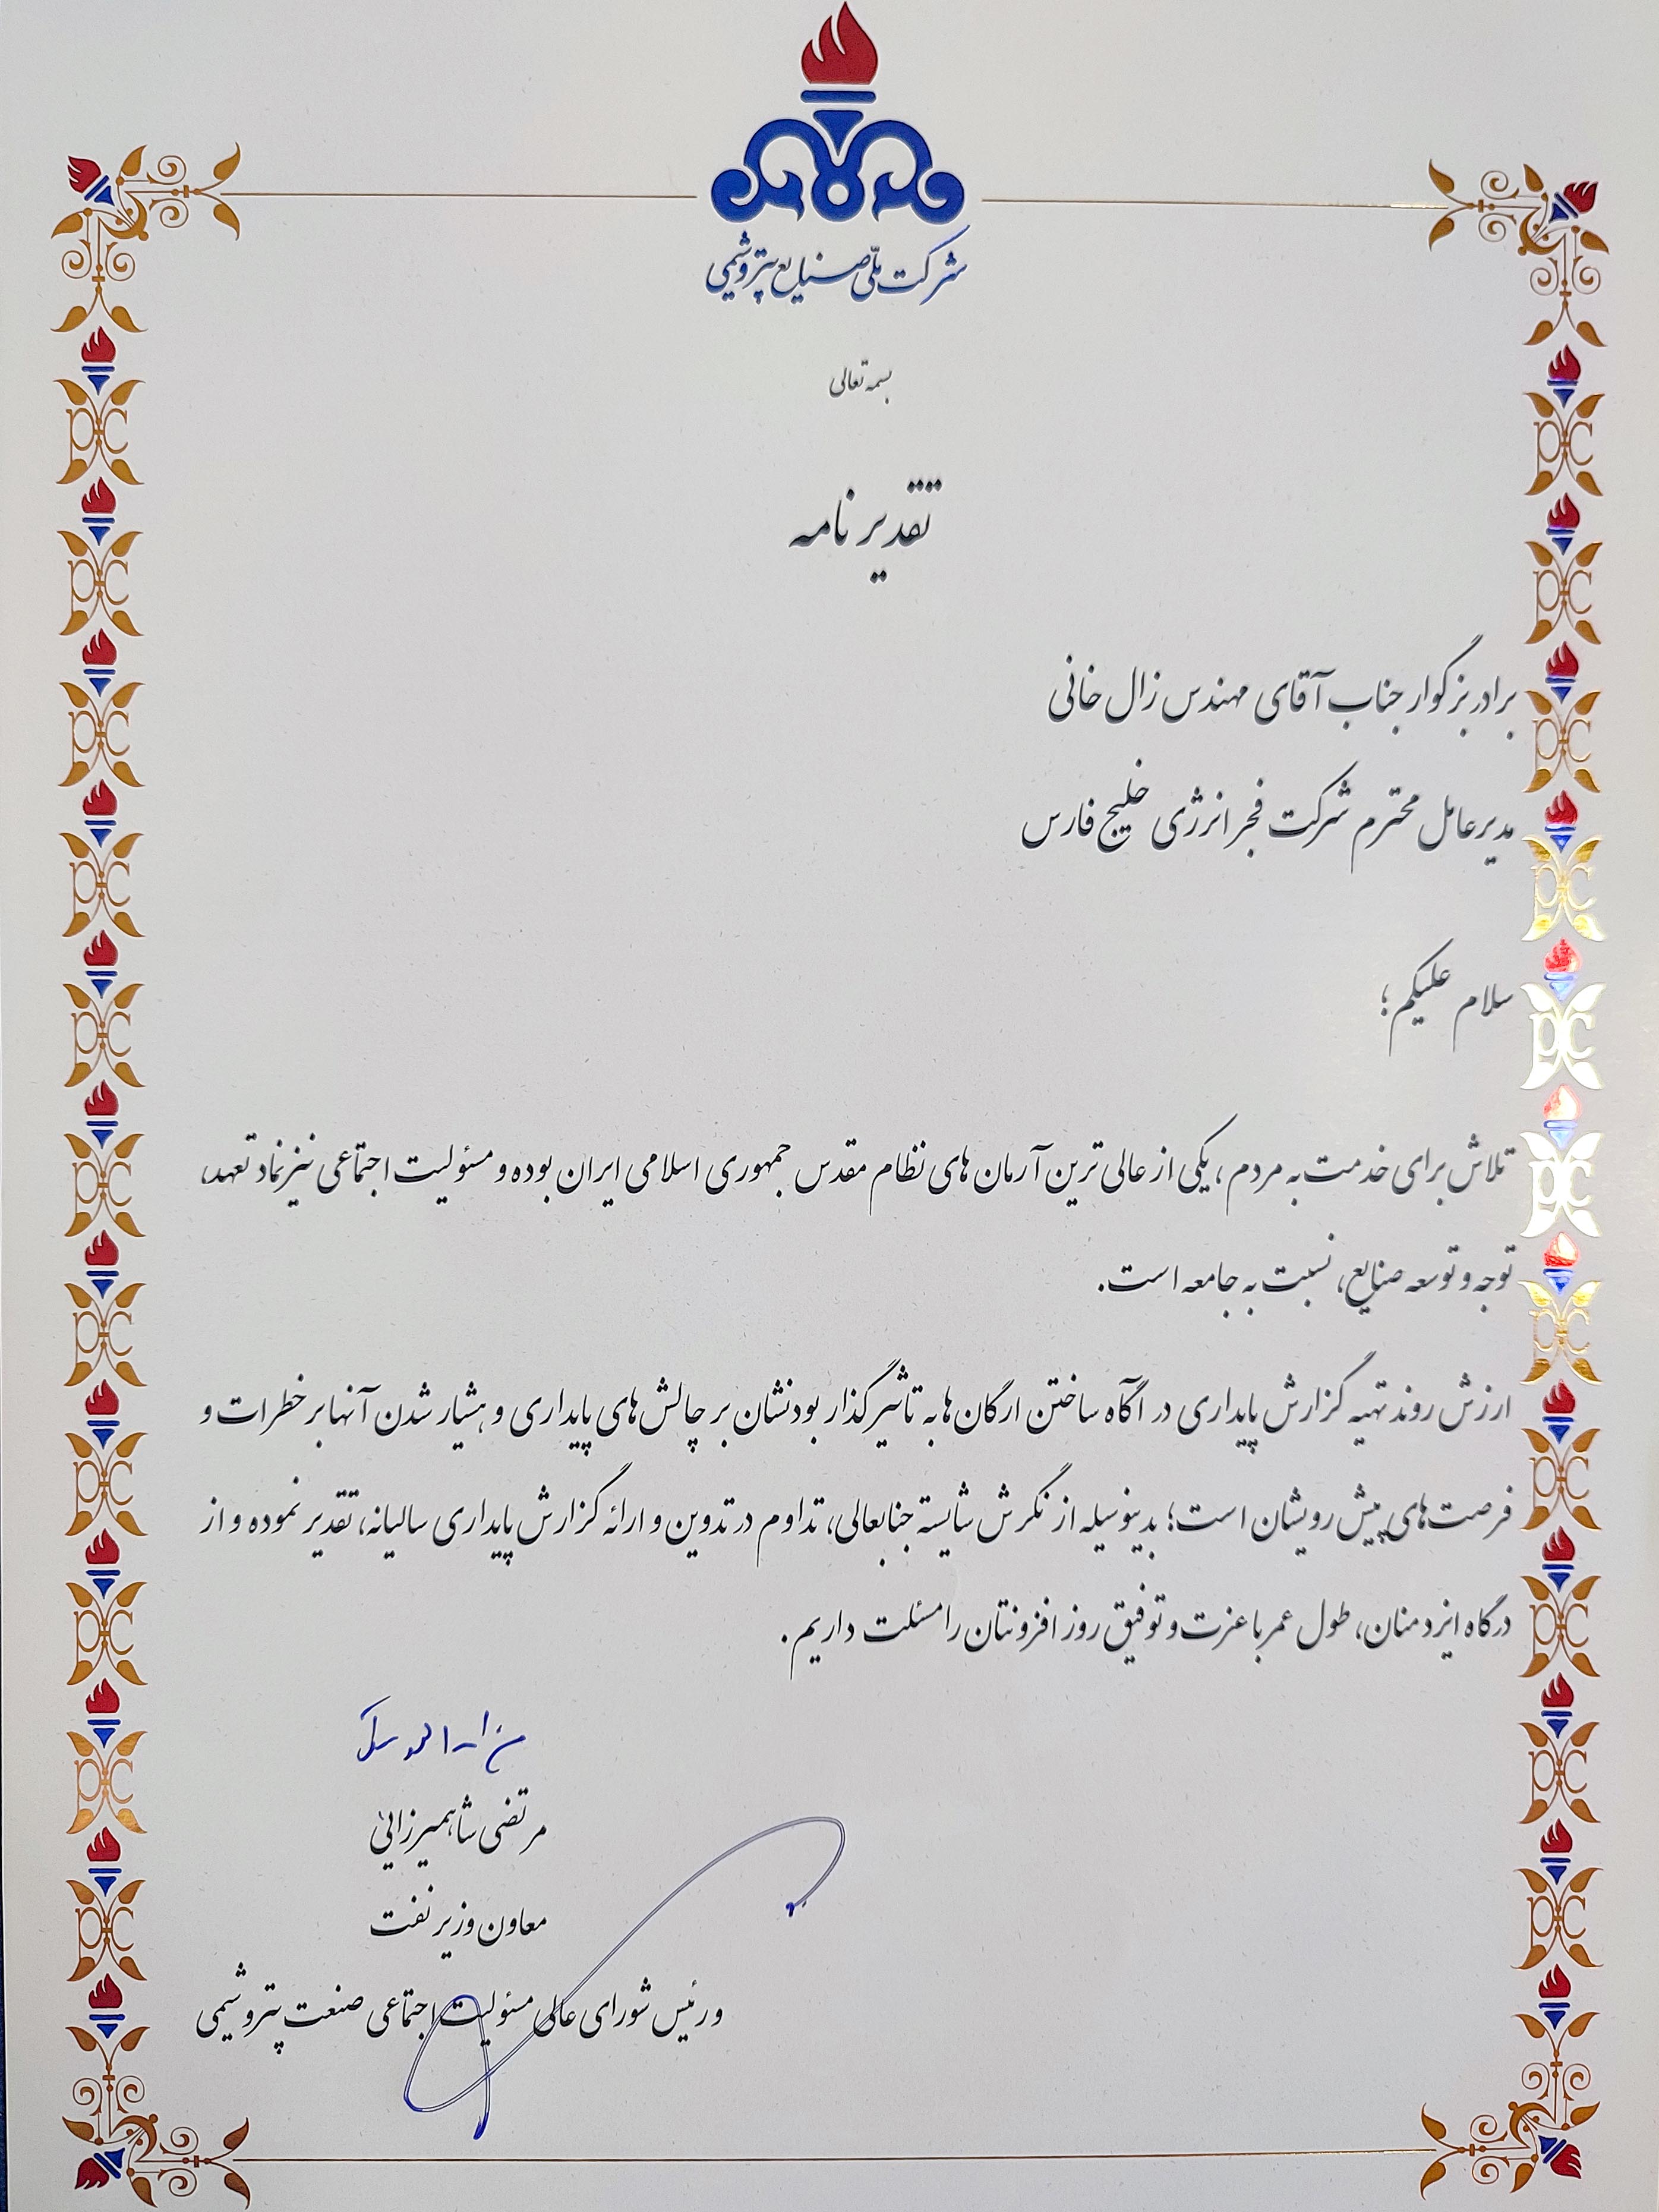 شرکت ملّی صنایع پتروشیمی
بسمه تعالی
تقدیر نامه
برادر بزرگوار جناب آقای مهندس زال خانی
مدیرعامل محترم شرکت فجر انرژی خلیج فارس
سلام علیکم؛
تلاش برای خدمت به مردم، یکی از عالی ترین آرمان های نظام مقدس جمهوری اسلامی ایران بوده و مسئولیت اجتماعی نیز نماد تعهد،
توجه و توسعه صنایع، نسبت به جامعه است.
ارزش روند تهیه گزارش پایداری در آگاه ساختن ارگان ها به تاثیرگذار بودنشان بر چالش های پایداری و هشیار شدن آنها بر خطرات و
فرصت های پیش رویشان است؛ بدینوسیله از نگرش شایسته جنابعالی، تداوم در تدوین و ارائه گزارش پایداری سالیانه، تقدیر نموده و از
درگاه ایزد منان، طول عمر با عزت و توفیق روز افزونتان را مسئلت داریم.
مرتضی شاهمیرزایی
معاون وزیر نفت
و رئیس شورای عالی مسئولیت اجتماعی صنعت پتروشیمی